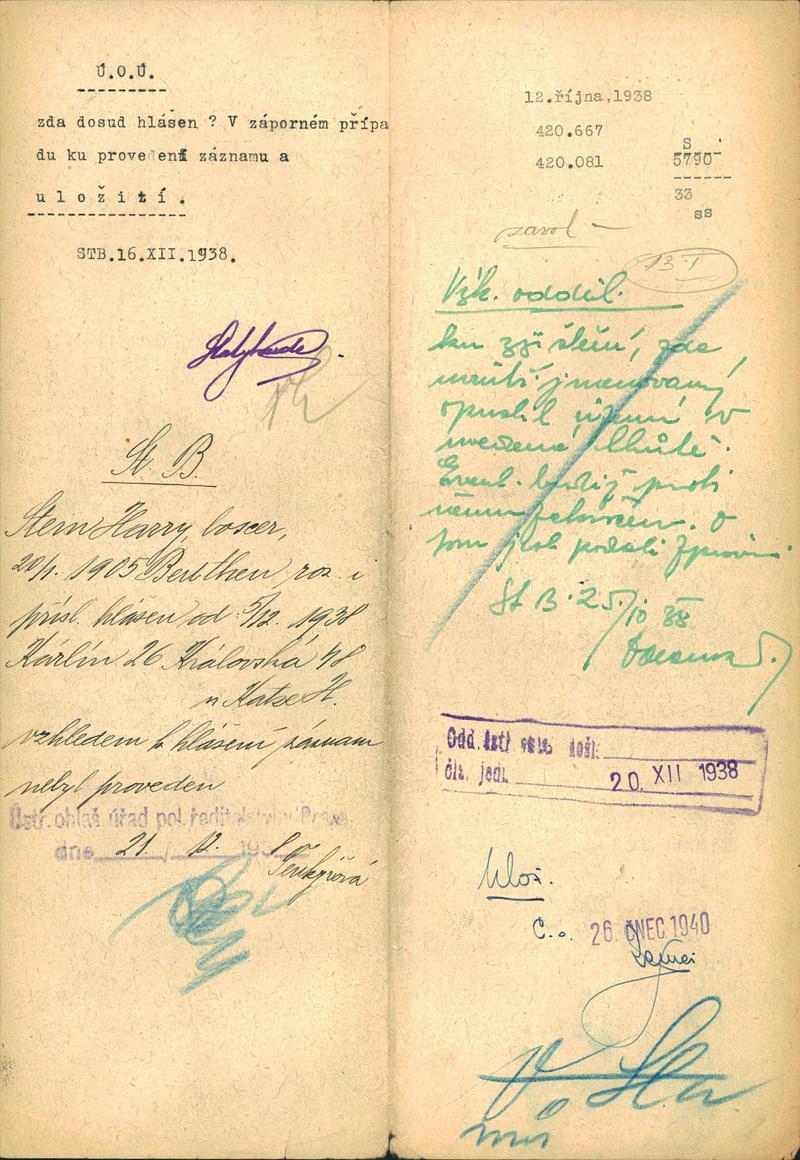 Ú.O.Ú.
zda dosud hlášen ? V záporném přípa
du ku provedení záznamu a
uložití.
STB.16.XII.1938.
St. B.
Stern Harry, boxer,
20/1. 1905 Beuthen roz. i
přísl. hlášen od 5/12. 1938
Karlín 26 Královská 48
u Katze H.
vzhledem k hlášení záznam
nebyl proveden
Ústř. ohlaš. úřad pol. ředitelství v Praze.
dne 21. / 12. 193
12.října,1938
420.667
420.081
S
5790
33
ss
13 I
Vyk. odděl.
ku zjištění, zda
jmenovaný
opustil území v
uvedené lhůtě.
Event. budiž proti
němu zakročeno. O
tom jest podati zprávu.
St B. 25/10 38
Odd. ústř.
čís. jedn.
20. XII 1938
Ulož.
26. ČNEC 1940